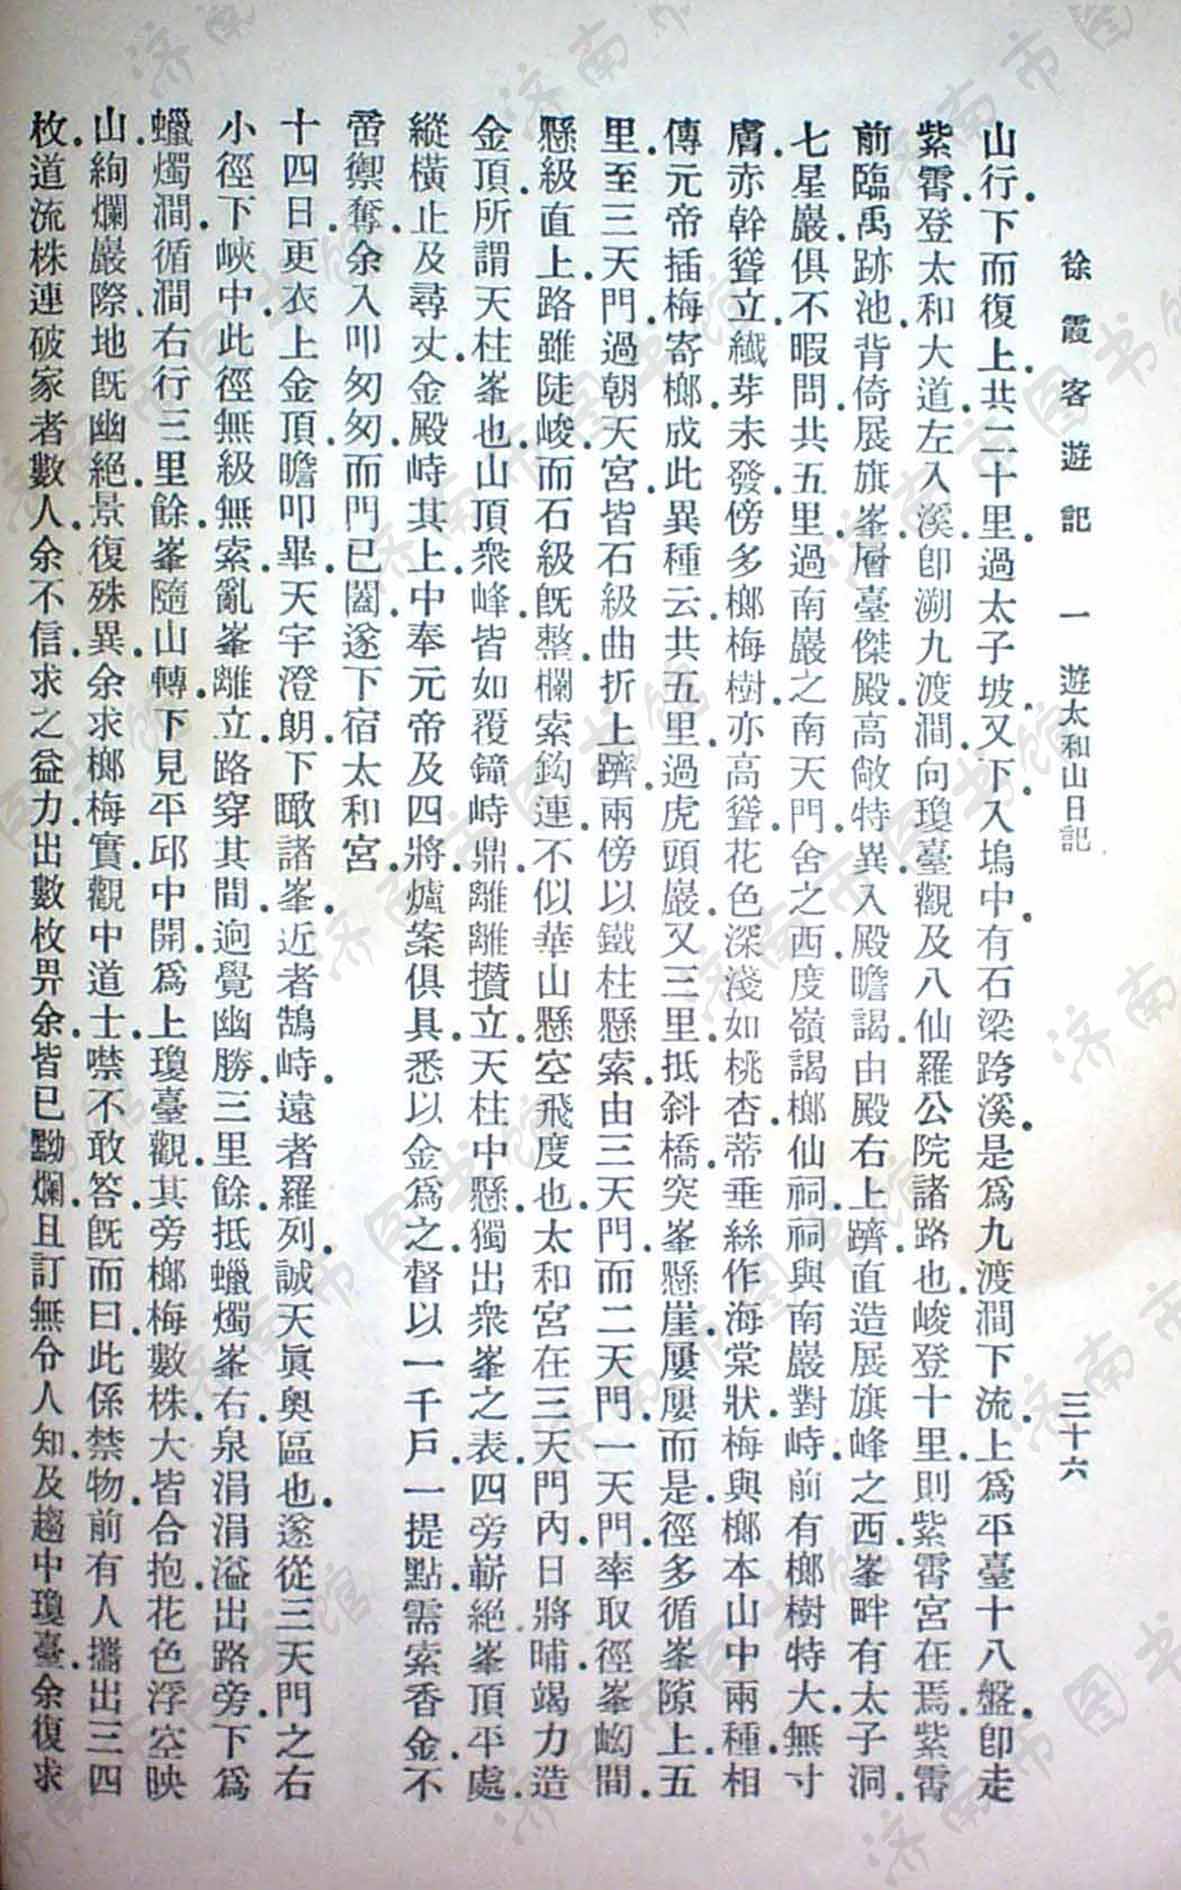 徐霞客遊記 一 遊太和山日記 三十六
山行下而復上共二十里過太子坡又下入塢中有石梁跨溪是爲九渡澗下流上爲平臺十八盤卽走
紫霄登太和大道左入溪卽溯九渡澗向瓊臺觀及八仙羅公院諸路也峻登十里則紫霄宮在焉紫霄
前臨禹跡池背倚展旗峯層臺傑殿高敞特異入殿瞻謁由殿右上躋直造展旗峰之西峯畔有太子洞
七星巖俱不暇問共五里過南巖之南天門舍之西度嶺謁榔仙祠祠與南巖對峙前有榔樹特大無寸
膚赤幹聳立纖芽未發傍多榔梅樹亦高聳花色深淺如桃杏蒂垂絲作海棠狀梅與榔本山中兩種相
傳元帝插梅寄榔成此異種云共五里過虎頭巖又三里抵斜橋突峯懸崖屢屢而是徑多循峯隙上五
里至三天門過朝天宮皆石級曲折上躋兩傍以鐵柱懸索由三天門而二天門一天門率取徑峯岰間
懸級直上路雖陡峻而石級旣整欄索鈎連不似華山懸空飛度也太和宮在三天門內日將晡竭力造
金頂所謂天柱峯也山頂衆峰皆如覆鐘峙鼎離離攅立天柱中懸獨出衆峯之表四旁嶄絕峯頂平處
縱橫止及尋丈金殿峙其上中奉元帝及四將爐案俱具悉以金爲之督以一千戶一提點需索香金不
啻禦奪余入叩匆匆而門已闔遂下宿太和宮
十四日更衣上金頂瞻叩畢天宇澄朗下瞰諸峯近者鵠峙遠者羅列誠天眞奧區也遂從三天門之右
小徑下峽中此徑無級無索亂峯離立路穿其間迥覺幽勝三里餘抵蠟燭峯右泉涓涓溢出路旁下爲
蠟燭澗循澗右行三里餘峯隨山轉下見平邱中開爲上瓊臺觀其旁榔梅數株大皆合抱花色浮空映
山絢爛巖際地旣幽絕景復殊異余求榔梅實觀中道士噤不敢答旣而曰此係禁物前有人攜出三四
枚道流株連破家者數人余不信求之益力出數枚畀余皆已黝爛且訂無令人知及趨中瓊臺余復求